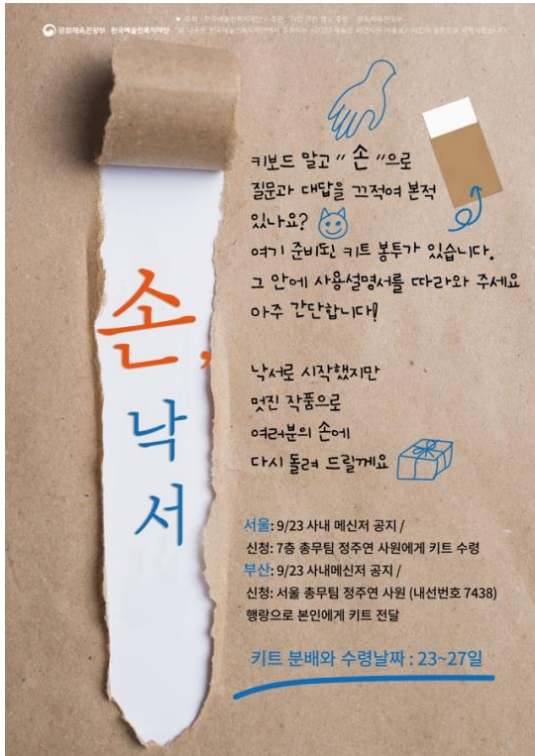 문화체육관광부 한국예술인복지재단
손,
낙
서
키보드 말고 “ 손 ”으로
질문과 대답을 끄적여 본적
있나요?
여기 준비된 키트 봉투가 있습니다.
그 안에 사용설명서를 따라와 주세요
아주 간단합니다!
낙서로 시작했지만
멋진 작품으로
여러분의 손에
다시 돌려 드릴께요
서울: 9/23 사내 메신저 공지 /
신청: 7층 총무팀 정주연 사원에게 키트 수령
부산: 9/23 사내메신저 공지 /
신청: 서울 총무팀 정주연 사원 (내선번호 7438)
행랑으로 본인에게 키트 전달
키트 분배와 수령날짜 : 23~27일